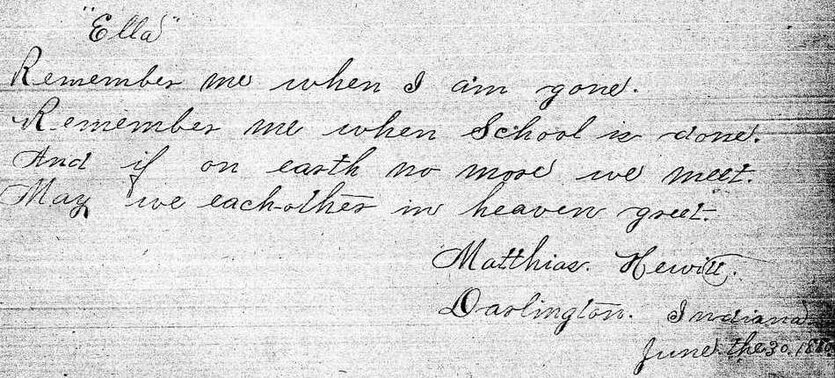 "Ella"
Remember me when I am gone.
Remember me when School is done.
And if on earth no more we meet.
May we each-other in heaven greet.
Matthias. Hewitt.
Darlington. Indiana.
June. the 30,